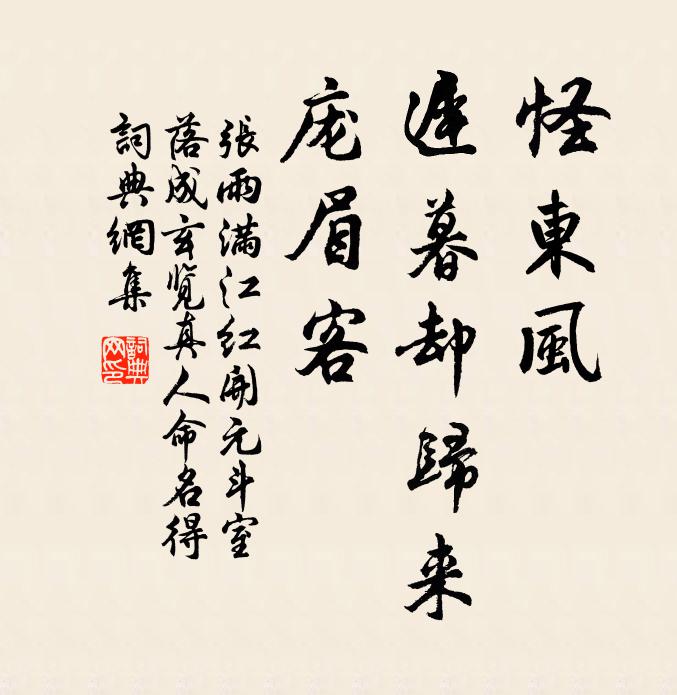 怪東風
遲暮却歸来
庞眉客
張雨满江红開元斗室
落成玄览真人命名得
詞典網集
詞典網印